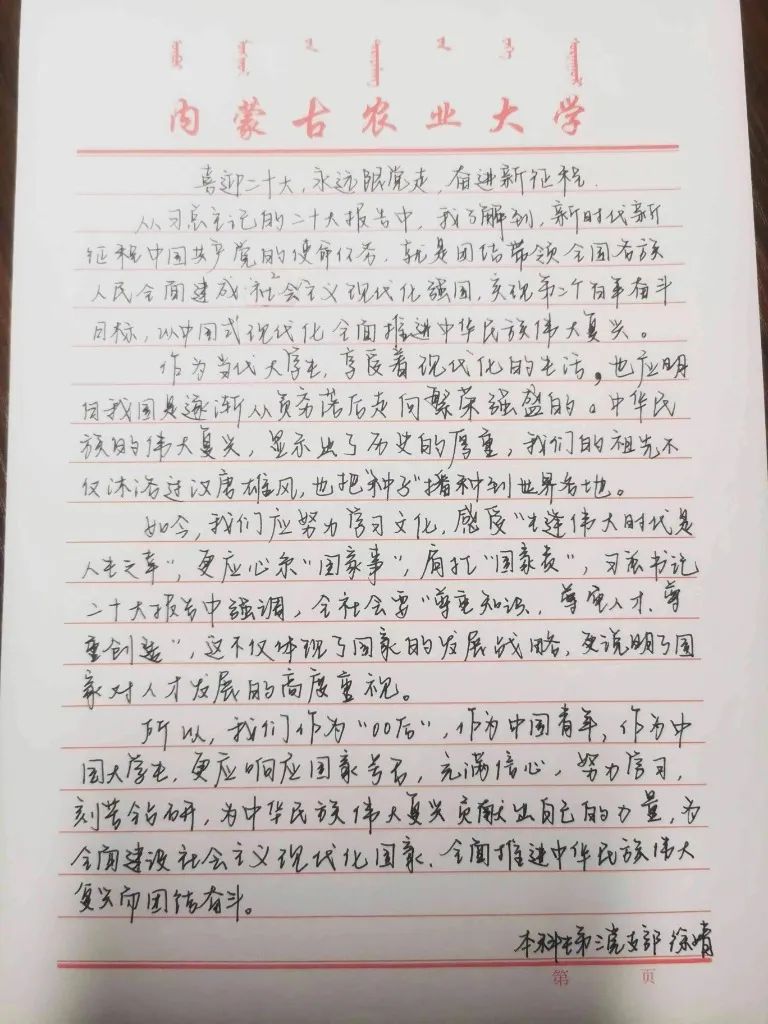 内蒙古农业大学
喜迎二十大，永远跟党走，奋进新征程.
从习总书记的二十大报告中，我了解到，新时代新
征程中国共产党的使命任务，就是团结带领全国各族
人民全面建成社会主义现代化强国，实现第二个百年奋斗
目标，以中国式现代化全面推进中华民族伟大复兴。
作为当代大学生，享受着现代化的生活，也应明
白我国是逐渐从贫穷落后走向繁荣强盛的。中华民
族的伟大复兴，显示出了历史的厚重，我们的祖先不
仅沐浴过汉唐雄风，也把“种子”播种到世界各地。
如今，我们应努力学习文化，感受“生逢伟大时代是
人生之幸”，更应心系“国家事”，肩扛“国家责”，习总书记
二十大报告中强调，全社会要“尊重知识、尊重人才、尊
重创造”，这不仅体现了国家的发展战略，更说明了国
家对人才发展的高度重视。
所以，我们作为“00后”，作为中国青年，作为中
国大学生，更应响应国家号召，充满信心，努力学习，
刻苦钻研，为中华民族伟大复兴贡献出自己的力量，为
全面建设社会主义现代化国家、全面推进中华民族伟大
复兴而团结奋斗。
本科生第三党支部 徐婧
第 页